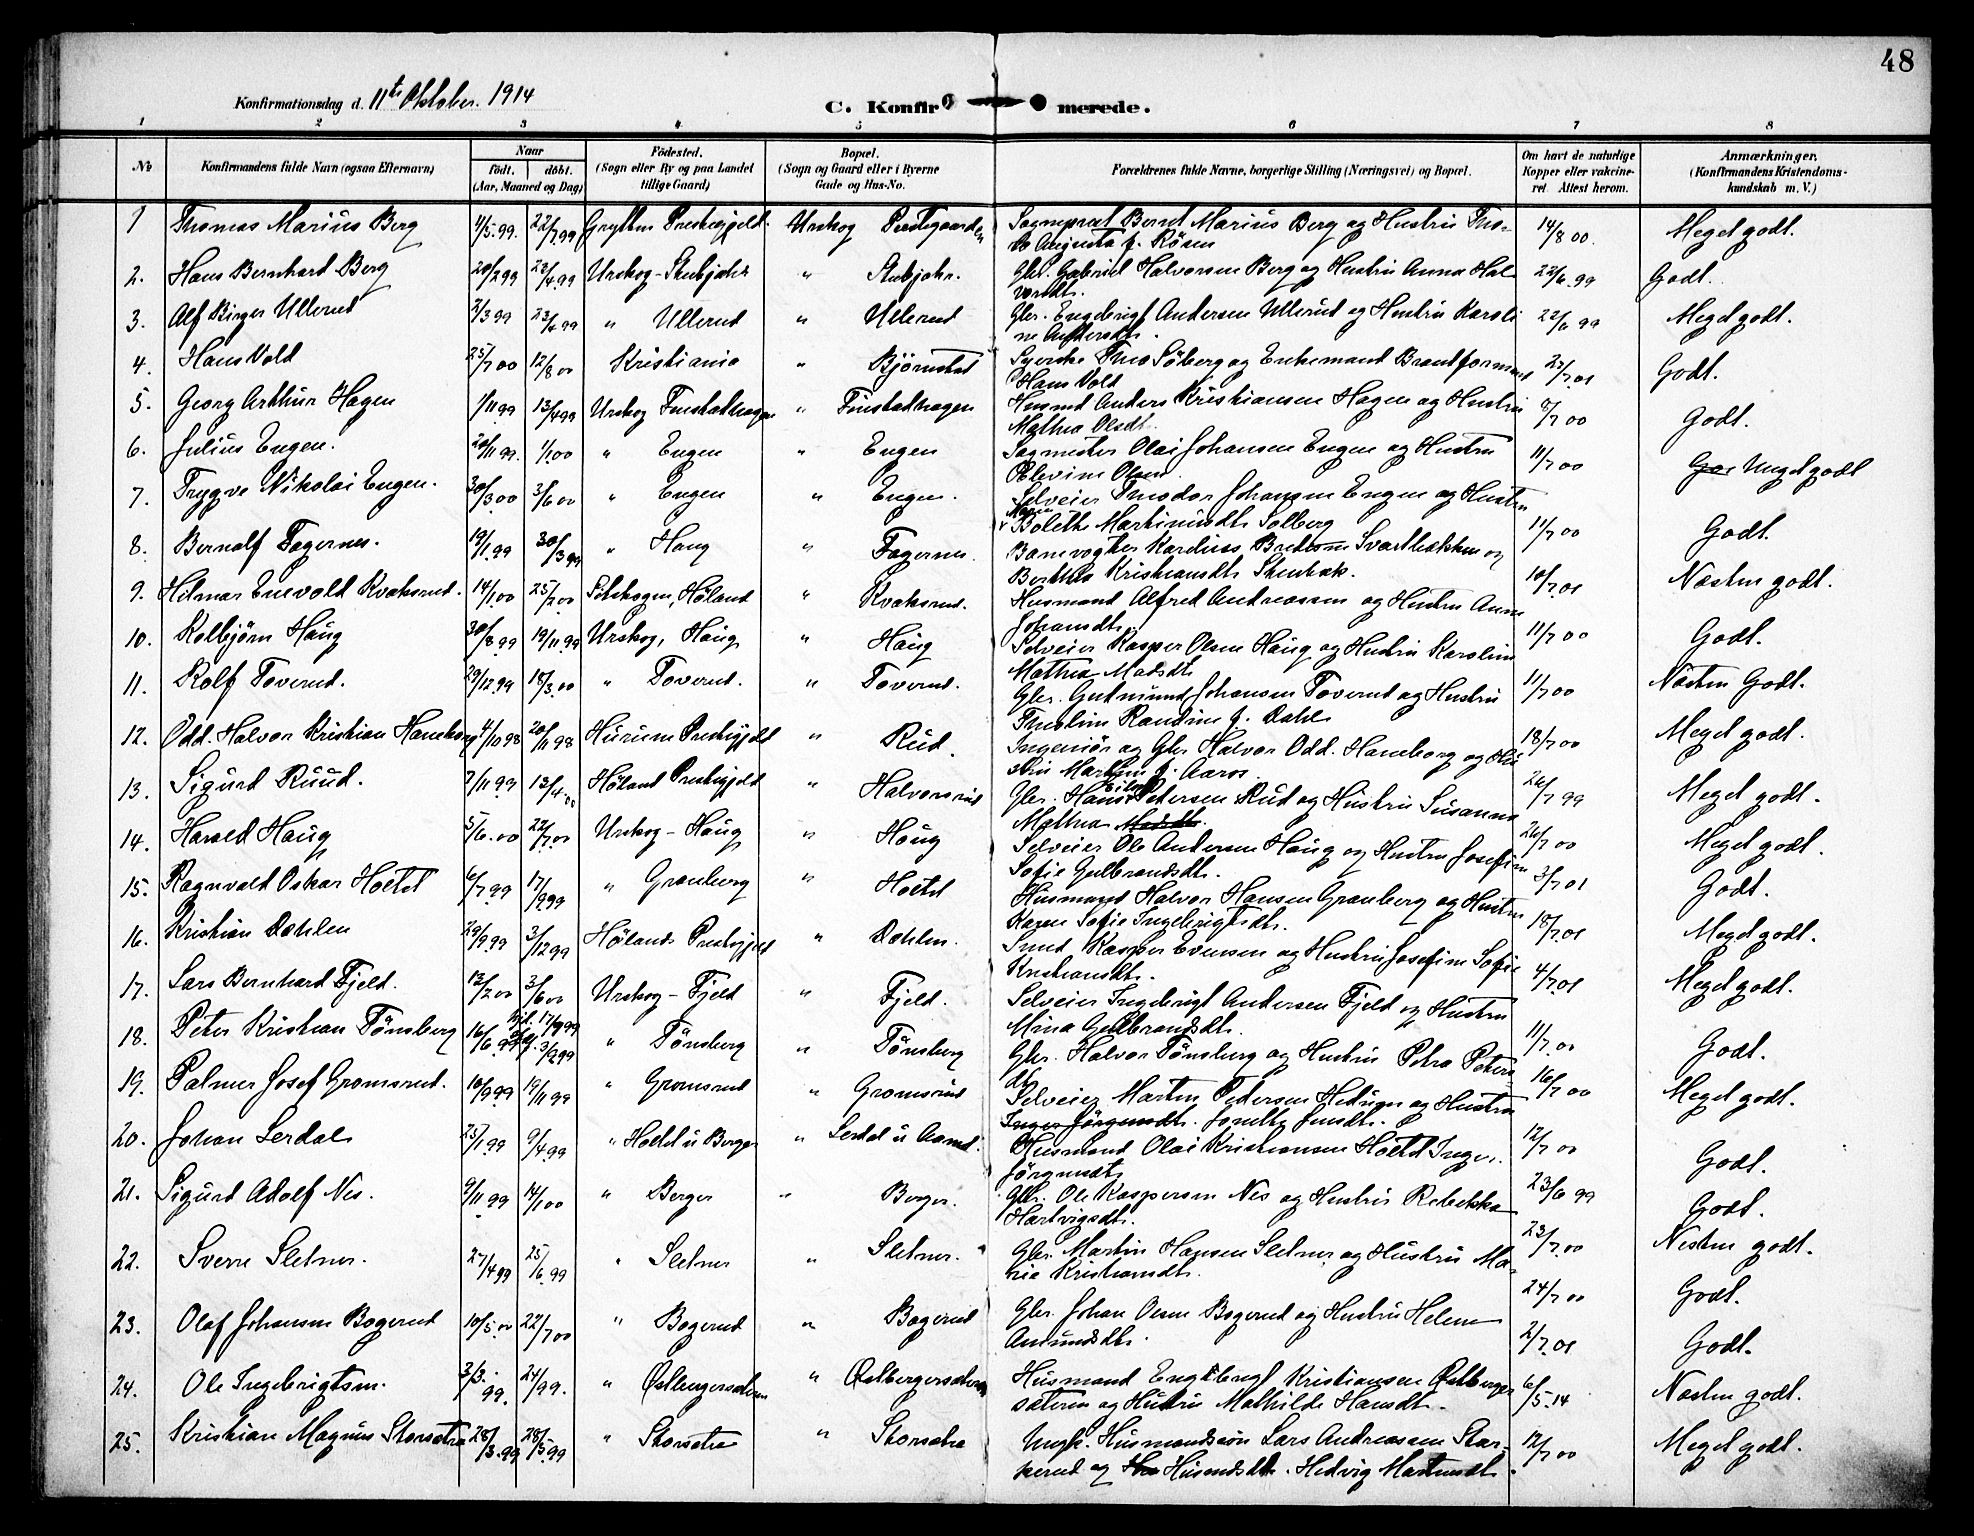 48
Konfirmationsdag d. 11te Oktober. 1914
C. Konfirmerede.
1 2 3 4 5 6 7 8
No Konfirmandens fulde Navn (ogsaa Efternavn) Naar födt. döbt. (Aar, Maaned og Dag) Födested. (Sogn eller By og paa Landet tillige Gaard) Bopæl. (Sogn og Gaard eller i Byerne Gade og Hus-No. Forældrenes fulde Navne, borgerlige Stilling (Næringsvei) og Bopæl. Om havt de naturlige Kopper eller vaccineret. Attest herom. Anmærkninger. (Konfirmandens Kristendomskundskab m. V.)
1 Thomas Marius Berg 4/5.99. 22/7.99 Grytten Prestegjeld. Urskog Prestegaarden Sogneprest Bernt Marius Berg og Hustru Tho-
Augusta f. Rösen 14/8 00. Meget godt.
2. Hans Bernhard Berg 20/2 99 23/4.99 Urskog - Stubjohr " Stubjohr. Gbr. Gabriel Halvorsen Berg og Hustru Anna Hal
vorsdt. 22/6.99 Godt.
3. Alf Birger Ullerud 2/3 99 23/4 99 " Ullerud " Ullerud Gbr. Engebrigt Andersen Ullerud og Hustru Karoli
ne Andersdt. 22/6 99 Meget godt.
4. Hans Vold 25/7 00 12/8 00 Kristiania " Björnstad Syerske Thea Söberg og Enkemand Brandformand
Hans Vold 27/7.01 Godt.
5. Georg Arthur Hagen 1/11 99 13/4 99 Urskog Finstadhagen " Finstadhagen Husmd Anders Kristiansen Hagen og Hustru
Mathea Olsdt. 9/7 00 Godt.
6. Julius Engen. 20/11 99. 1/1 00 " Engen " Engen Sagmester Olai Johansen Engen og Hustru
Elevine Olsen 11/7 00 Meget godt
7. Trygve Nikolai Engen. 30/3 00 3/6 00 " Engen " Engen. Selveier Theodor Johansen Engen og Hustru
Maren Bolette Martinusdt. Solberg 11/7 00 Godt.
8. Bernolf Fagernes. 19/1.99 30/3 99 " Haug " Fagernes. Banevogter Kardius Svartbækken og
Berthea Kristiansdt. Stenbæk. 10/7.01 Næsten godt.
9. Hilmar Enevold Kvaksrud. 14/1.00 25/2.00 Setskogen, Höland " Kvaksrud. Husmand Alfred Andreassen og Hustru Anne
Johansdt. 11/7 00 Godt.
10. Kolbjörn Haug 30/8.99 19/11 99 Urskog, Haug " Haug Selveier Kasper Olsen Haug og Hustru Karoline
Mathea Madsdt. 11/7 00 Næsten Godt.
11. Rolf Toverud. 29/12.99 18/3.00 " Toverud. " Toverud. Gbr. Gudmund Johansen Toverud og Hustru
Theoline Randine f. Dahl 18/7 00 Meget godt.
12. Odd. Halvor Kristian Haneborg 4/10 98 20/11 98 Hurum Prestegjeld " Rud. Ingeniör og Gbr Halvor Odd. Haneborg og Hu
stru Marthine f. Aaros. 26/7 99 Meget godt.
13. Sigurd Ruud. 7/11 99 13/4 00 Höland Prestegjeld " Halvorsrud Gbr. Hans Pedersen Rud og Hustru Susanna
Mathea 26/7 00 Meget godt.
14. Harald Haug 5/6.00 22/7.00 Urskog - Haug " Haug Selveier Ole Andersen Haug og Hustru Josefine
Sofie Gulbrandsdt. 3/7 01 Godt.
15. Ragnvald Oskar Hoetel 6/7.99 17/9 99 " Granberg " Hoetel Husmand Halvor Hansen Granberg og Hustru
Karen Sofie Ingebrigtsdt. 18/7.01 Meget godt.
16. Kristian Dahlen 29/9.99 3/12 99 Hölands Prestegjeld " Dahlen. Smed Kasper Evensen og Hustru Josefine Sofie
Kristiansdt. 4/7.01 Meget godt.
17. Lars Bernhard Fjeld. 13/2 00 3/6 00 Urskog - Fjeld " Fjeld. Selveier Ingebrigt Andersen Fjeld og Hustru
Mina Gulbrandsdt. 11/7.00 Godt.
18. Peter Kristian Tönsberg 16/6 99 17/9 99 3/9 99 " Tönsberg " Tönsberg Gbr. Halvor Tönsberg og Hustru Petra Peters
dt. 16/7 00 Meget godt.
19. Palmer Josef Gromsrud. 10/9 99 19/11 99 " Gromsrud " Gromsrud Selveier Martin Pedersen og Hustru
Inger Jörgensdt. Jensdt. 12/7 00 Godt.
20. Johan Lerdal 25/1.99 9/4.99 " Hoetel u Berger " Lerdal u Husmand Olai Kristiansen Hoetel Inger
Jörgensdt. 23/6 99 Godt.
21. Sigurd Adolf Nes. 9/11 99 14/1 00 " Berger " Berger. Gbr. Ole Kaspersen Nes og Hustru Rebekka
Hartvigsdt. 23/7.00 Nesten godt.
22. Sverre Sletner. 27/4 99 25/6.99 " Sletner " Sletner. Gbr. Martin Hansen Sletner og Hustru Ma-
rie Kristiansdt. 24/7 00 Godt.
23. Olaf Johansen Bogerud 10/5.00 22/7 00 " Bogerud " Bogerud Gbr. Johan Olsen Bogerud og Hustru Helene
Amundsdt. 2/7.01 Godt.
24. Ole Ingebrigtsen. 3/3. 99. 24/ 99. " Östbergersæteren " Östbergersæteren Husmand Engebrigt Kristiansen Östberger
sæteren og Hustru Mathilde Hansdt. 6/5.14 Næsten godt.
25. Kristian Magnus Storsætra 28/3.99 28/5.99 " Storsætra " Storsætra Ungk. Husmandssön Lars Andreassen Star-
kerud og Husmdsdt. Hedvig Martinsdt. 12/7 00 Meget godt.